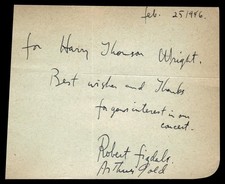 feb. 25 1946.
for Harry Thomson Wright.
Best wishes and Thanks
for your interest in our
concert.
Robert Fizdale.
Arthur Gold